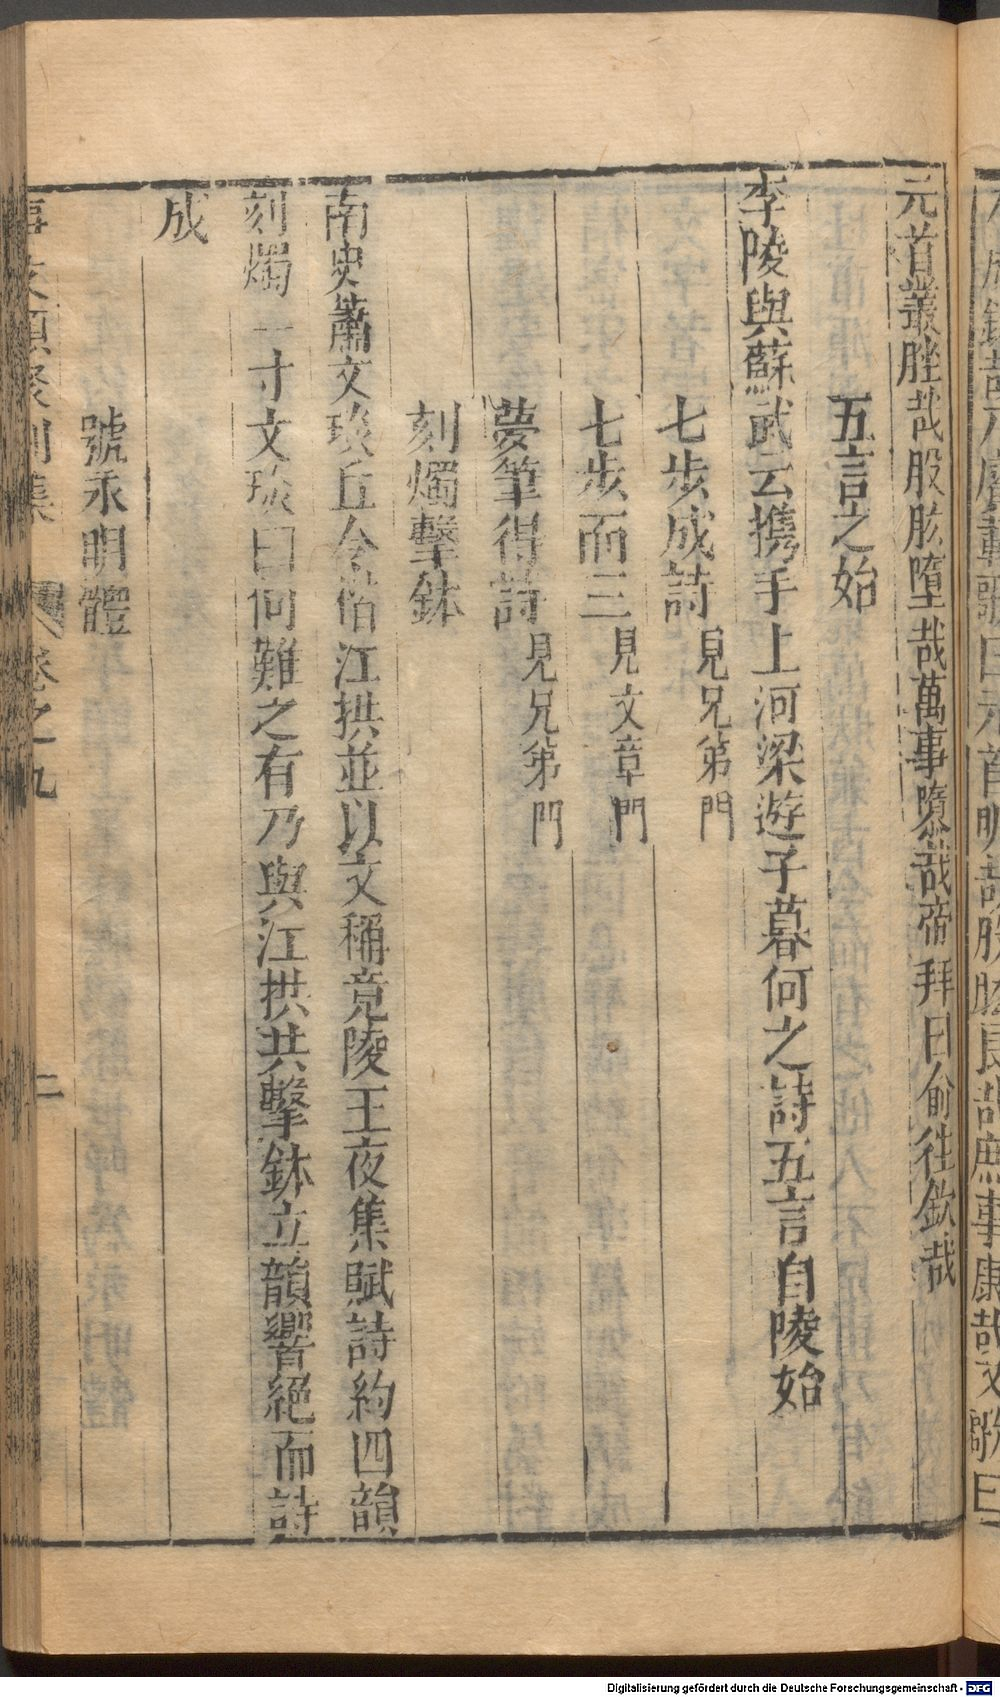 元首叢脞哉股肱墮哉萬事隳哉帝拜曰俞徃欽哉
五言之始
李陵與蘇武云携手上河梁遊子暮何之詩五言自陵始
七步成詩 見兄弟門
七步而三 見文章門
夢筆得詩 見兄弟門
刻燭擊鉢
南史蕭文琰丘令楷江拱並以文稱竟陵王夜集賦詩約四韻
刻燭一寸文琰曰何難之有乃與江拱共擊鉢立韻響絕而詩
成
號永明體
卷之九
二
Digitalisierung gefördert durch die Deutsche Forschungsgemeinschaft - DFG